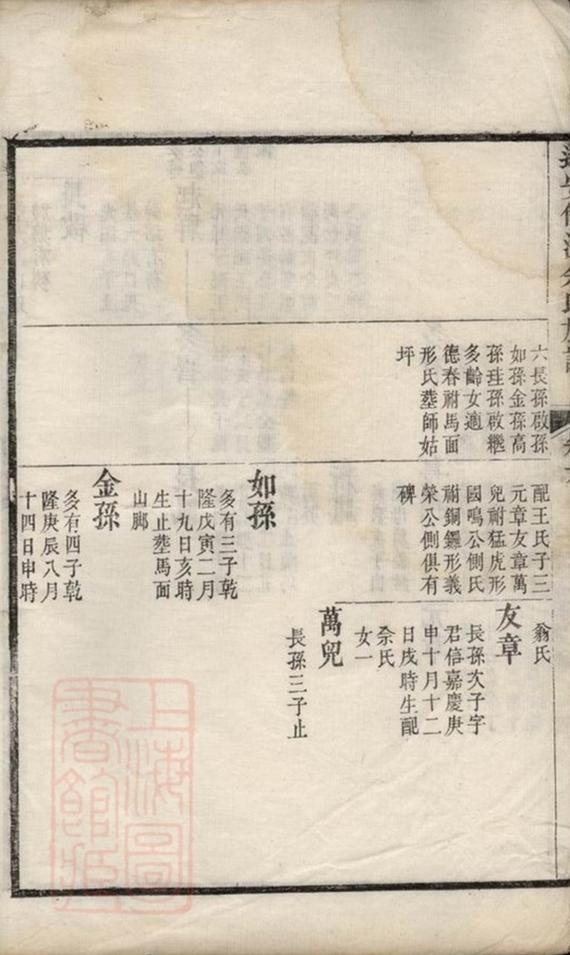 六長孫啟孫
如孫金孫高
孫珪孫啟繼
多齡女適
德春祔馬面
形氏葬師姑
坪
配王氏子三
元章友章萬
兒祔猛虎形
國鳴公側氏
祔銅鑼形義
榮公側俱有
碑
翁氏
友章
長孫次子字
君信嘉慶庚
申十月十二
日戌時生配
佘氏
女一
萬兒
長孫三子止
如孫
多有三子乾
隆戊寅二月
十九日亥時
生止葬馬面
山廊
金孫
多有四子乾
隆庚辰八月
十四日申時
上海圖
書館藏